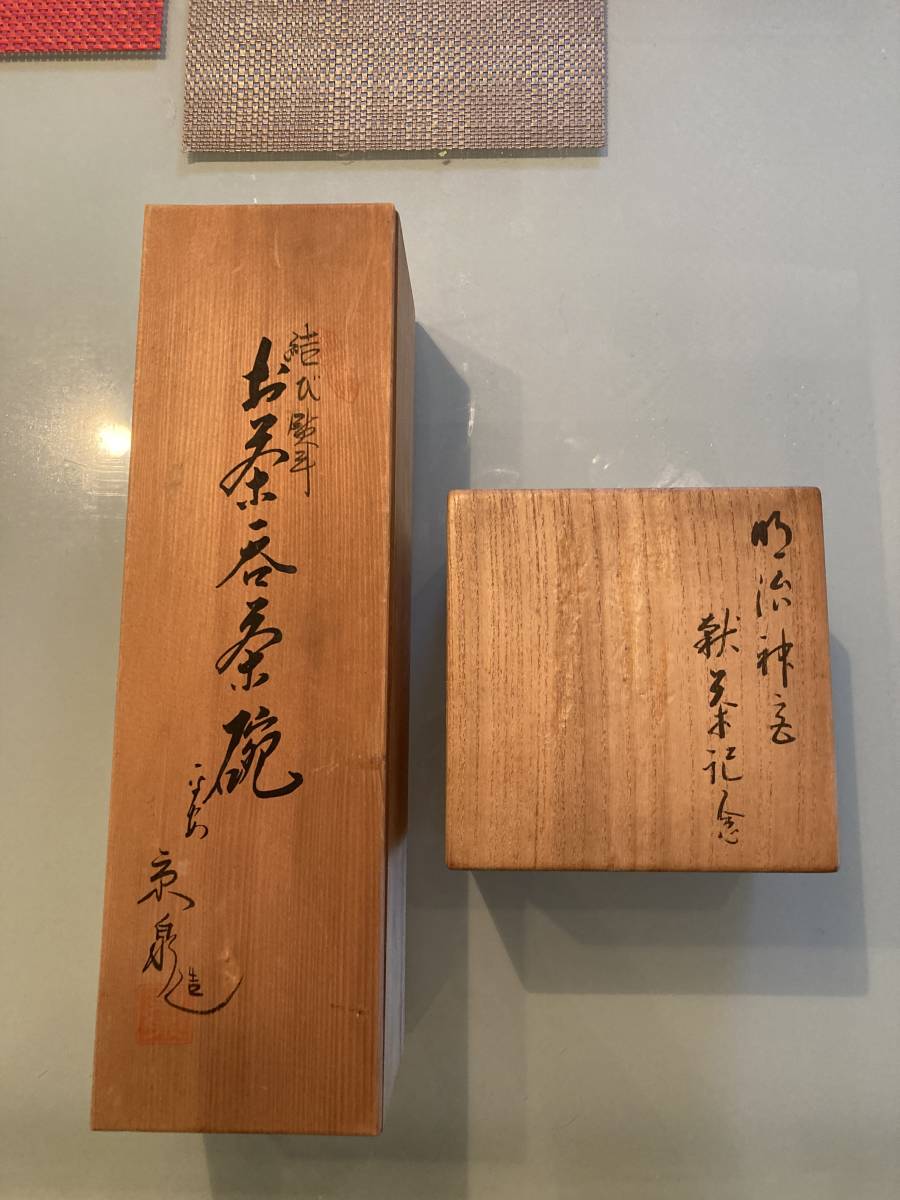 結び熨斗
お茶呑茶碗
京泉造
明治神宮
献茶記念